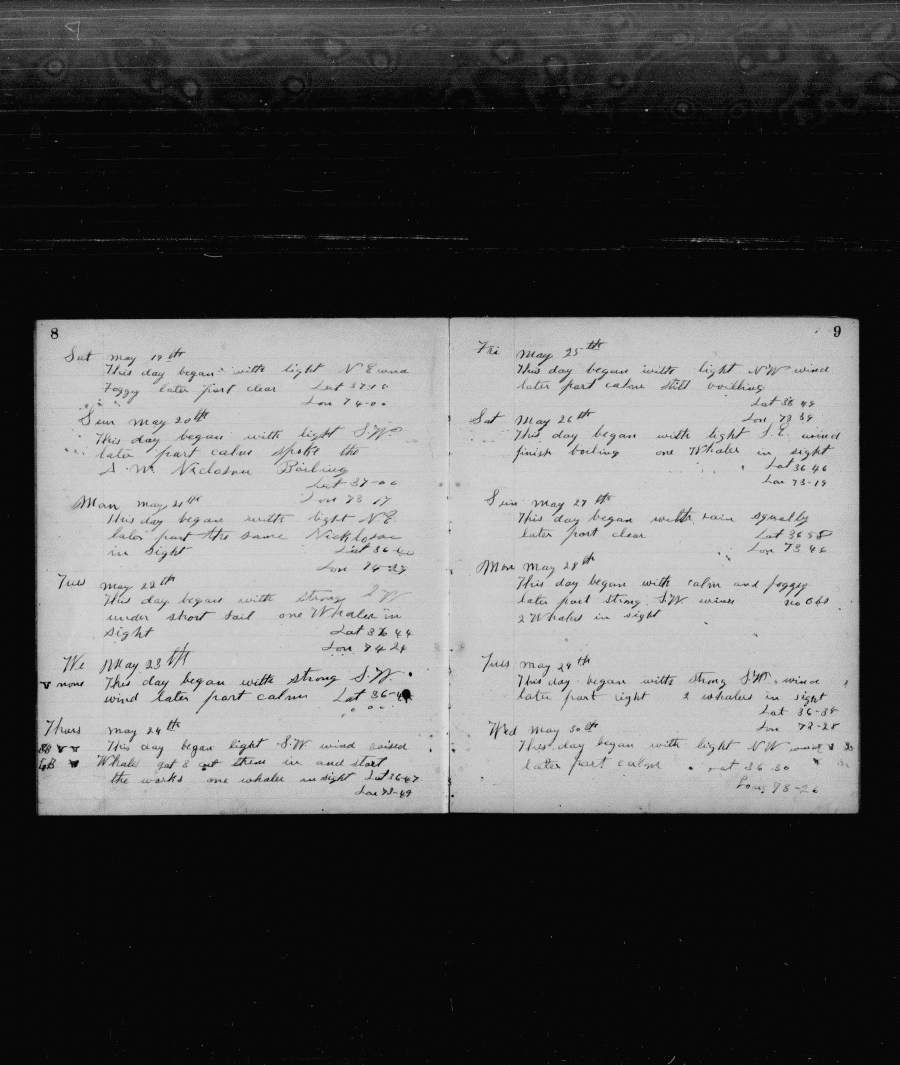 8
Sat May 19th
This day began with light N E wind
Foggy later part clear Lat 37-16
Lon 74-00
Sun May 20th
This day began with light S.W.
later part calm spoke the
A. M. Nicholson Boiling
Lat 37-00
Lon 73 17
Mon May 21th
This day began with light N E.
later part the same Nickloson
in sight Lat 36-40
Lon 74-39
Tues May 22th
This day began with strong S W
under short sail one Whaler in
sight Lat 36 44
Lon 74 24
We May 23th
none This day began with strong S.W.
wind later part calm Lat 36-4
Thurs May 24th
This day began light S.W wind raised
Whales got 3 cut them in and start
the works one whaler in sight Lat 36-47
Lon 73-49
9
Fri May 25th
This day began with light N W wind
later part calm still boilling
Lat 36 49
Lon 73 39
Sat May 26th
This day began with light S.E. wind
finish boiling one Whaler in sight
Lat 36 46
Lon 73-19
Sun May 27th
This day began with rain squally
later part clear Lat 36 58
Lon 73 46
Mon May 28th
This day began with calm and foggy
later part strong S.W. wind no Obs
2 Whalers in sight
Tues May 29th
This day began with strong S.W. wind
later part light 2 whalers in sight
Lat 36-38
Lon 73-28
Wed May 30th
This day began with light N W wind
later part calm Lat 36 30
Long 73-26